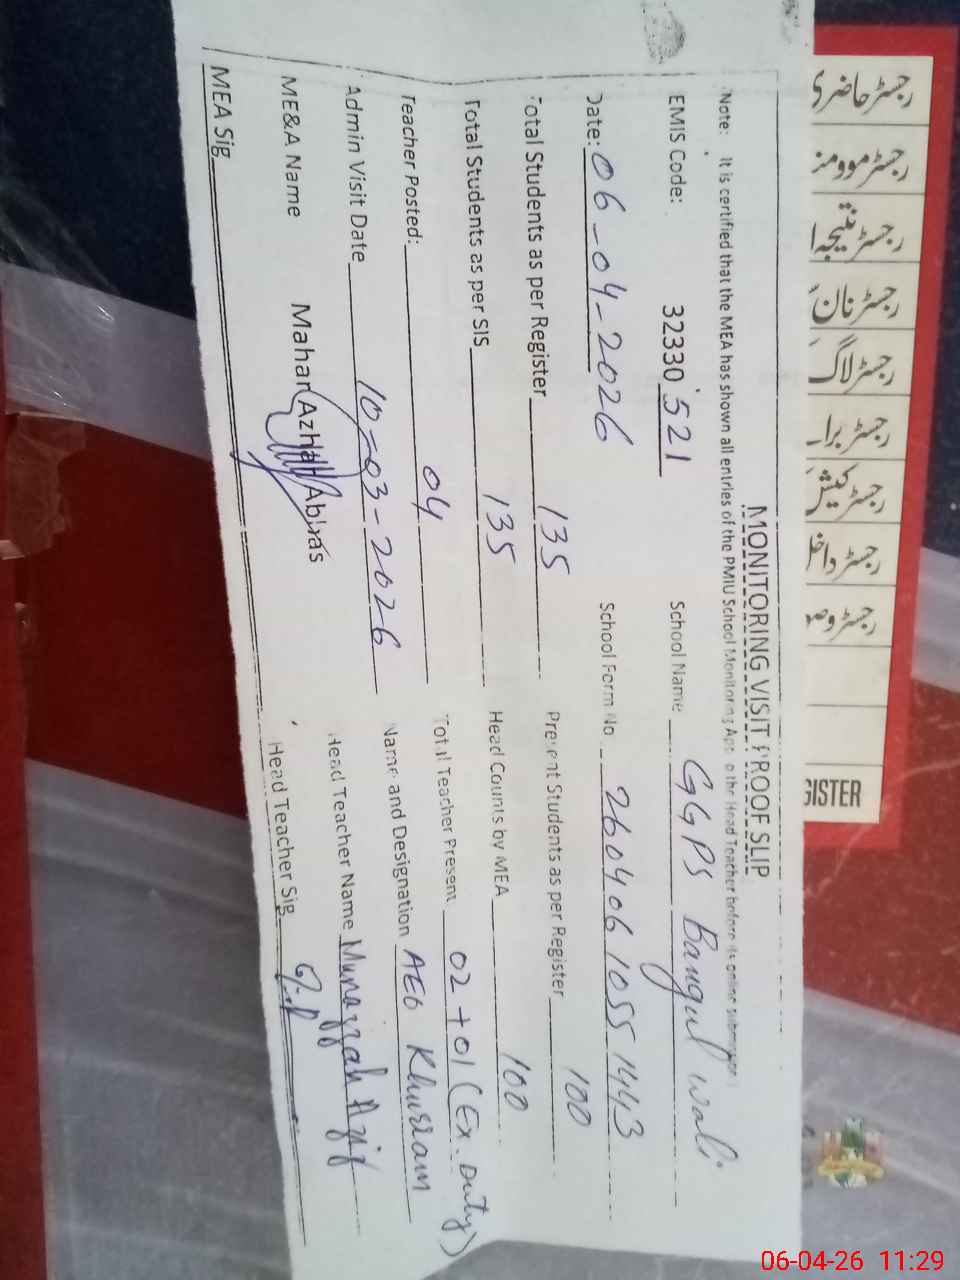 MONITORING VISIT PROOF SLIP
Note: It is certified that the MEA has shown all entries of the PMIU School Monitoring App to the Head Teacher before its online submission
EMIS Code: 32330 521 School Name GGPS Bangul Wali
Date: 06-04-2026 School Form No 260406 1055 1443
Total Students as per Register 135 Present Students as per Register 100
Total Students as per SIS 135 Head Counts by MEA 100
Teacher Posted: 04 Total Teacher Present 02 + 01 (Ex. Duty)
Admin Visit Date 10-03-2026 Name and Designation AEO Khurram
ME&A Name Mahar Azhar Abbas Head Teacher Name Munazzah Azif
MEA Sig Head Teacher Sig
رجسٹر حاضری
رجسٹر موومنٹ
رجسٹر نتیجہ
رجسٹر نان
رجسٹر لاگ
رجسٹر برا
رجسٹر کیش
رجسٹر داخل
رجسٹر وصو
GISTER
06-04-26 11:29